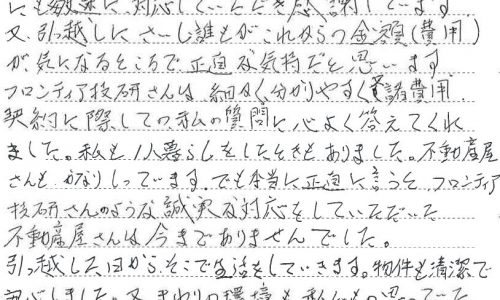 にも敏速に対応していただき感謝しています
又、引越しにさいし誰もがこれからの金額(費用)
が気になるところで正直な気持だと思います
フロンティア技研さんは細かく分かりやすく諸費用
契約に際しての、私の質問に心よく答えてくれ
ました。私も1人暮らしをしたときもありました。不動産屋
さんもかなりしっています。でも本当に正直に言うと、フロンティア
技研さんのような誠実な対応をしていただいた
不動産屋さんは今までありませんでした。
引っ越した日からそこで生活をしていきます。物件も清潔で
しました。又、まわりの環境も私にも